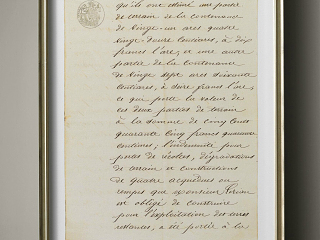 qu'ils ont estimé une partie
de terrain de la contenance
de Vingt-un ares quatre
vingt-douze centiares, à dix
francs l'are, et une autre
partie de la contenance
de Vingt sept ares soixante
centiares, à douze francs l'are,
ce qui porte la valeur de
ces deux parties de terrain
à la somme de cinq cent
quarante cinq francs quarante
centimes; l'indemnité pour
pertes de récoltes, dégradations
de terrain et constructions
de quatre acqueducs ou
rampes que monsieur
est obligé de construire
pour l'exploitation des terres
restantes, a été portée à la